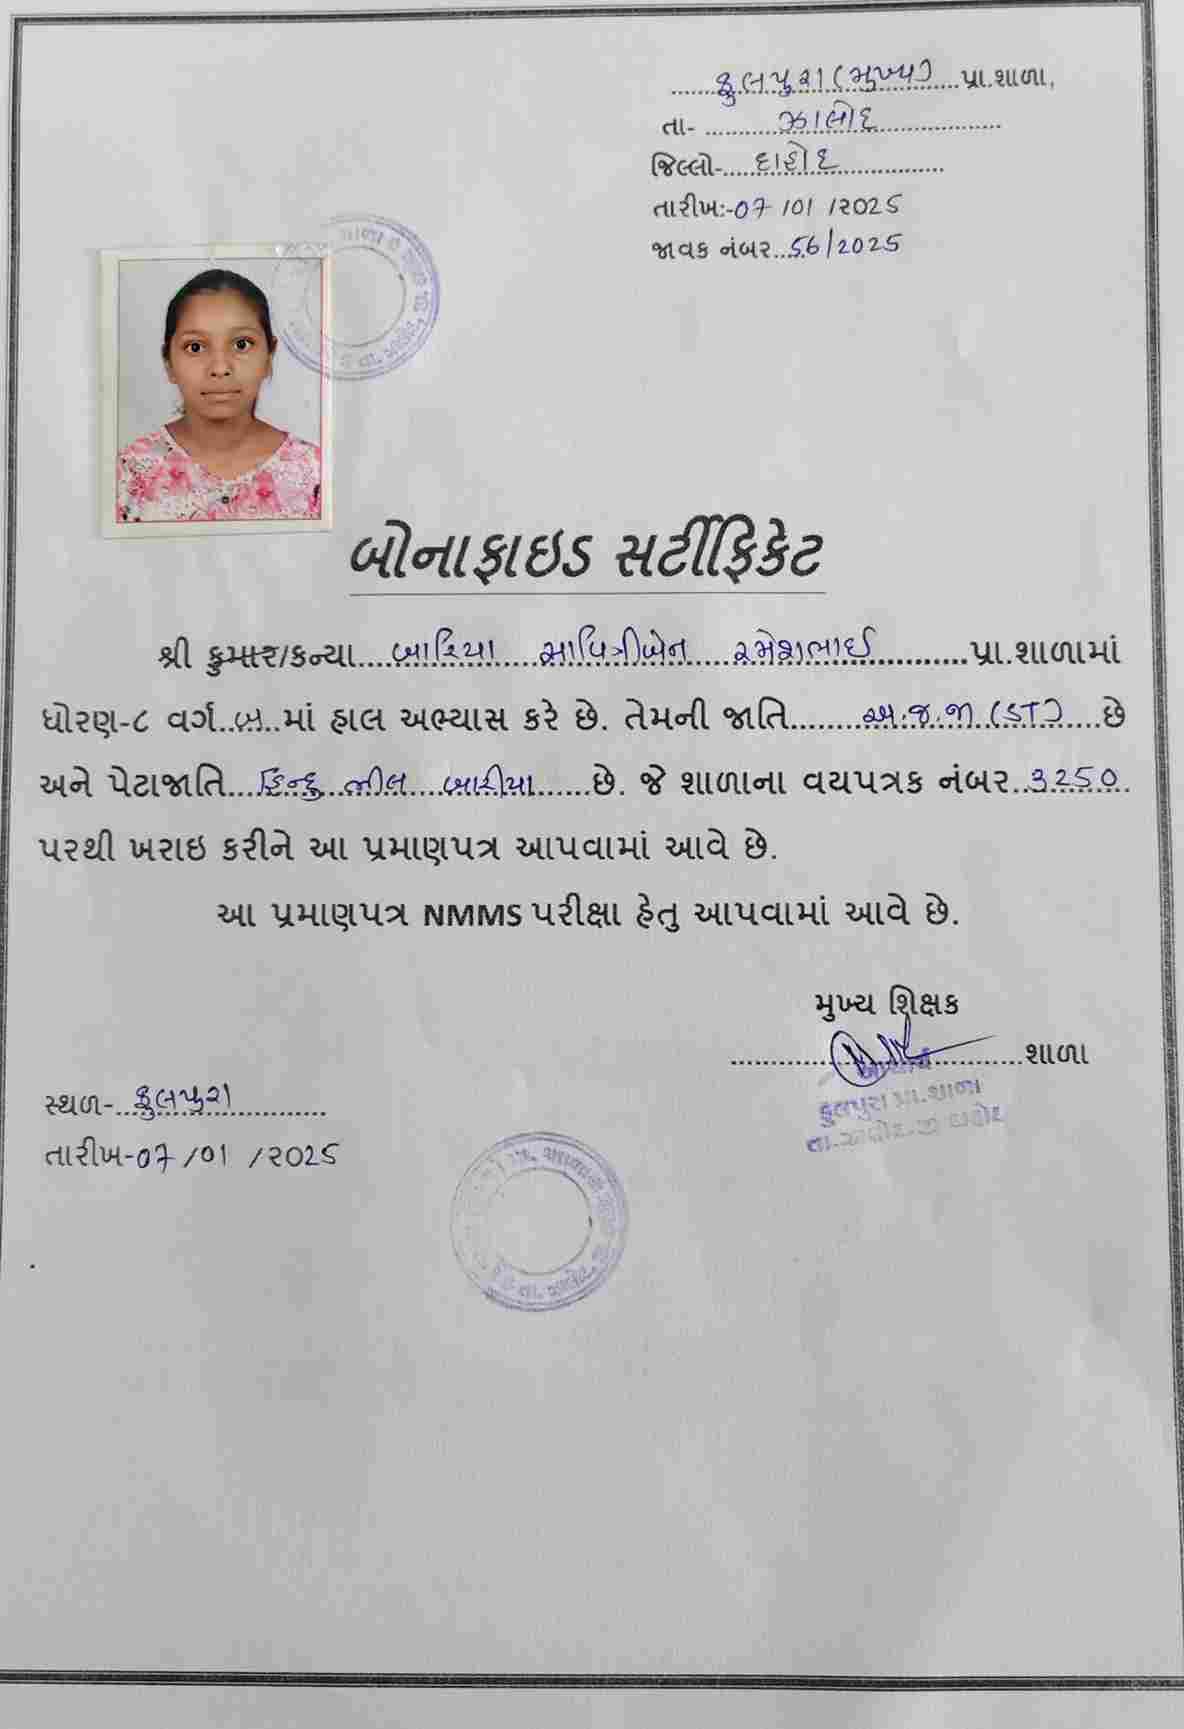 ફુલપુરા (મુખ્ય) પ્રા.શાળા,
તા- ઝાલોદ
જિલ્લો- દાહોદ
તારીખ:-07 /01 /૨025
જાવક નંબર...56/2025
બોનાફાઇડ સર્ટીફિકેટ
શ્રી કુમાર/કન્યા બારિયા સાવિત્રીબેન રમેશભાઈ પ્રા.શાળામાં
ધોરણ-૮ વર્ગ બ માં હાલ અભ્યાસ કરે છે. તેમની જાતિ અ.જ.જા (ST) છે
અને પેટાજાતિ હિન્દુ ભીલ બારીયા છે. જે શાળાના વયપત્રક નંબર 3250
પરથી ખરાઇ કરીને આ પ્રમાણપત્ર આપવામાં આવે છે.
આ પ્રમાણપત્ર NMMS પરીક્ષા હેતુ આપવામાં આવે છે.
મુખ્ય શિક્ષક
શાળા
આચાર્ય
ફુલપુરા પ્રા.શાળા
તા.ઝાલોદ.જી.દાહોદ
સ્થળ- ફુલપુરા
તારીખ-07 /01 /૨025